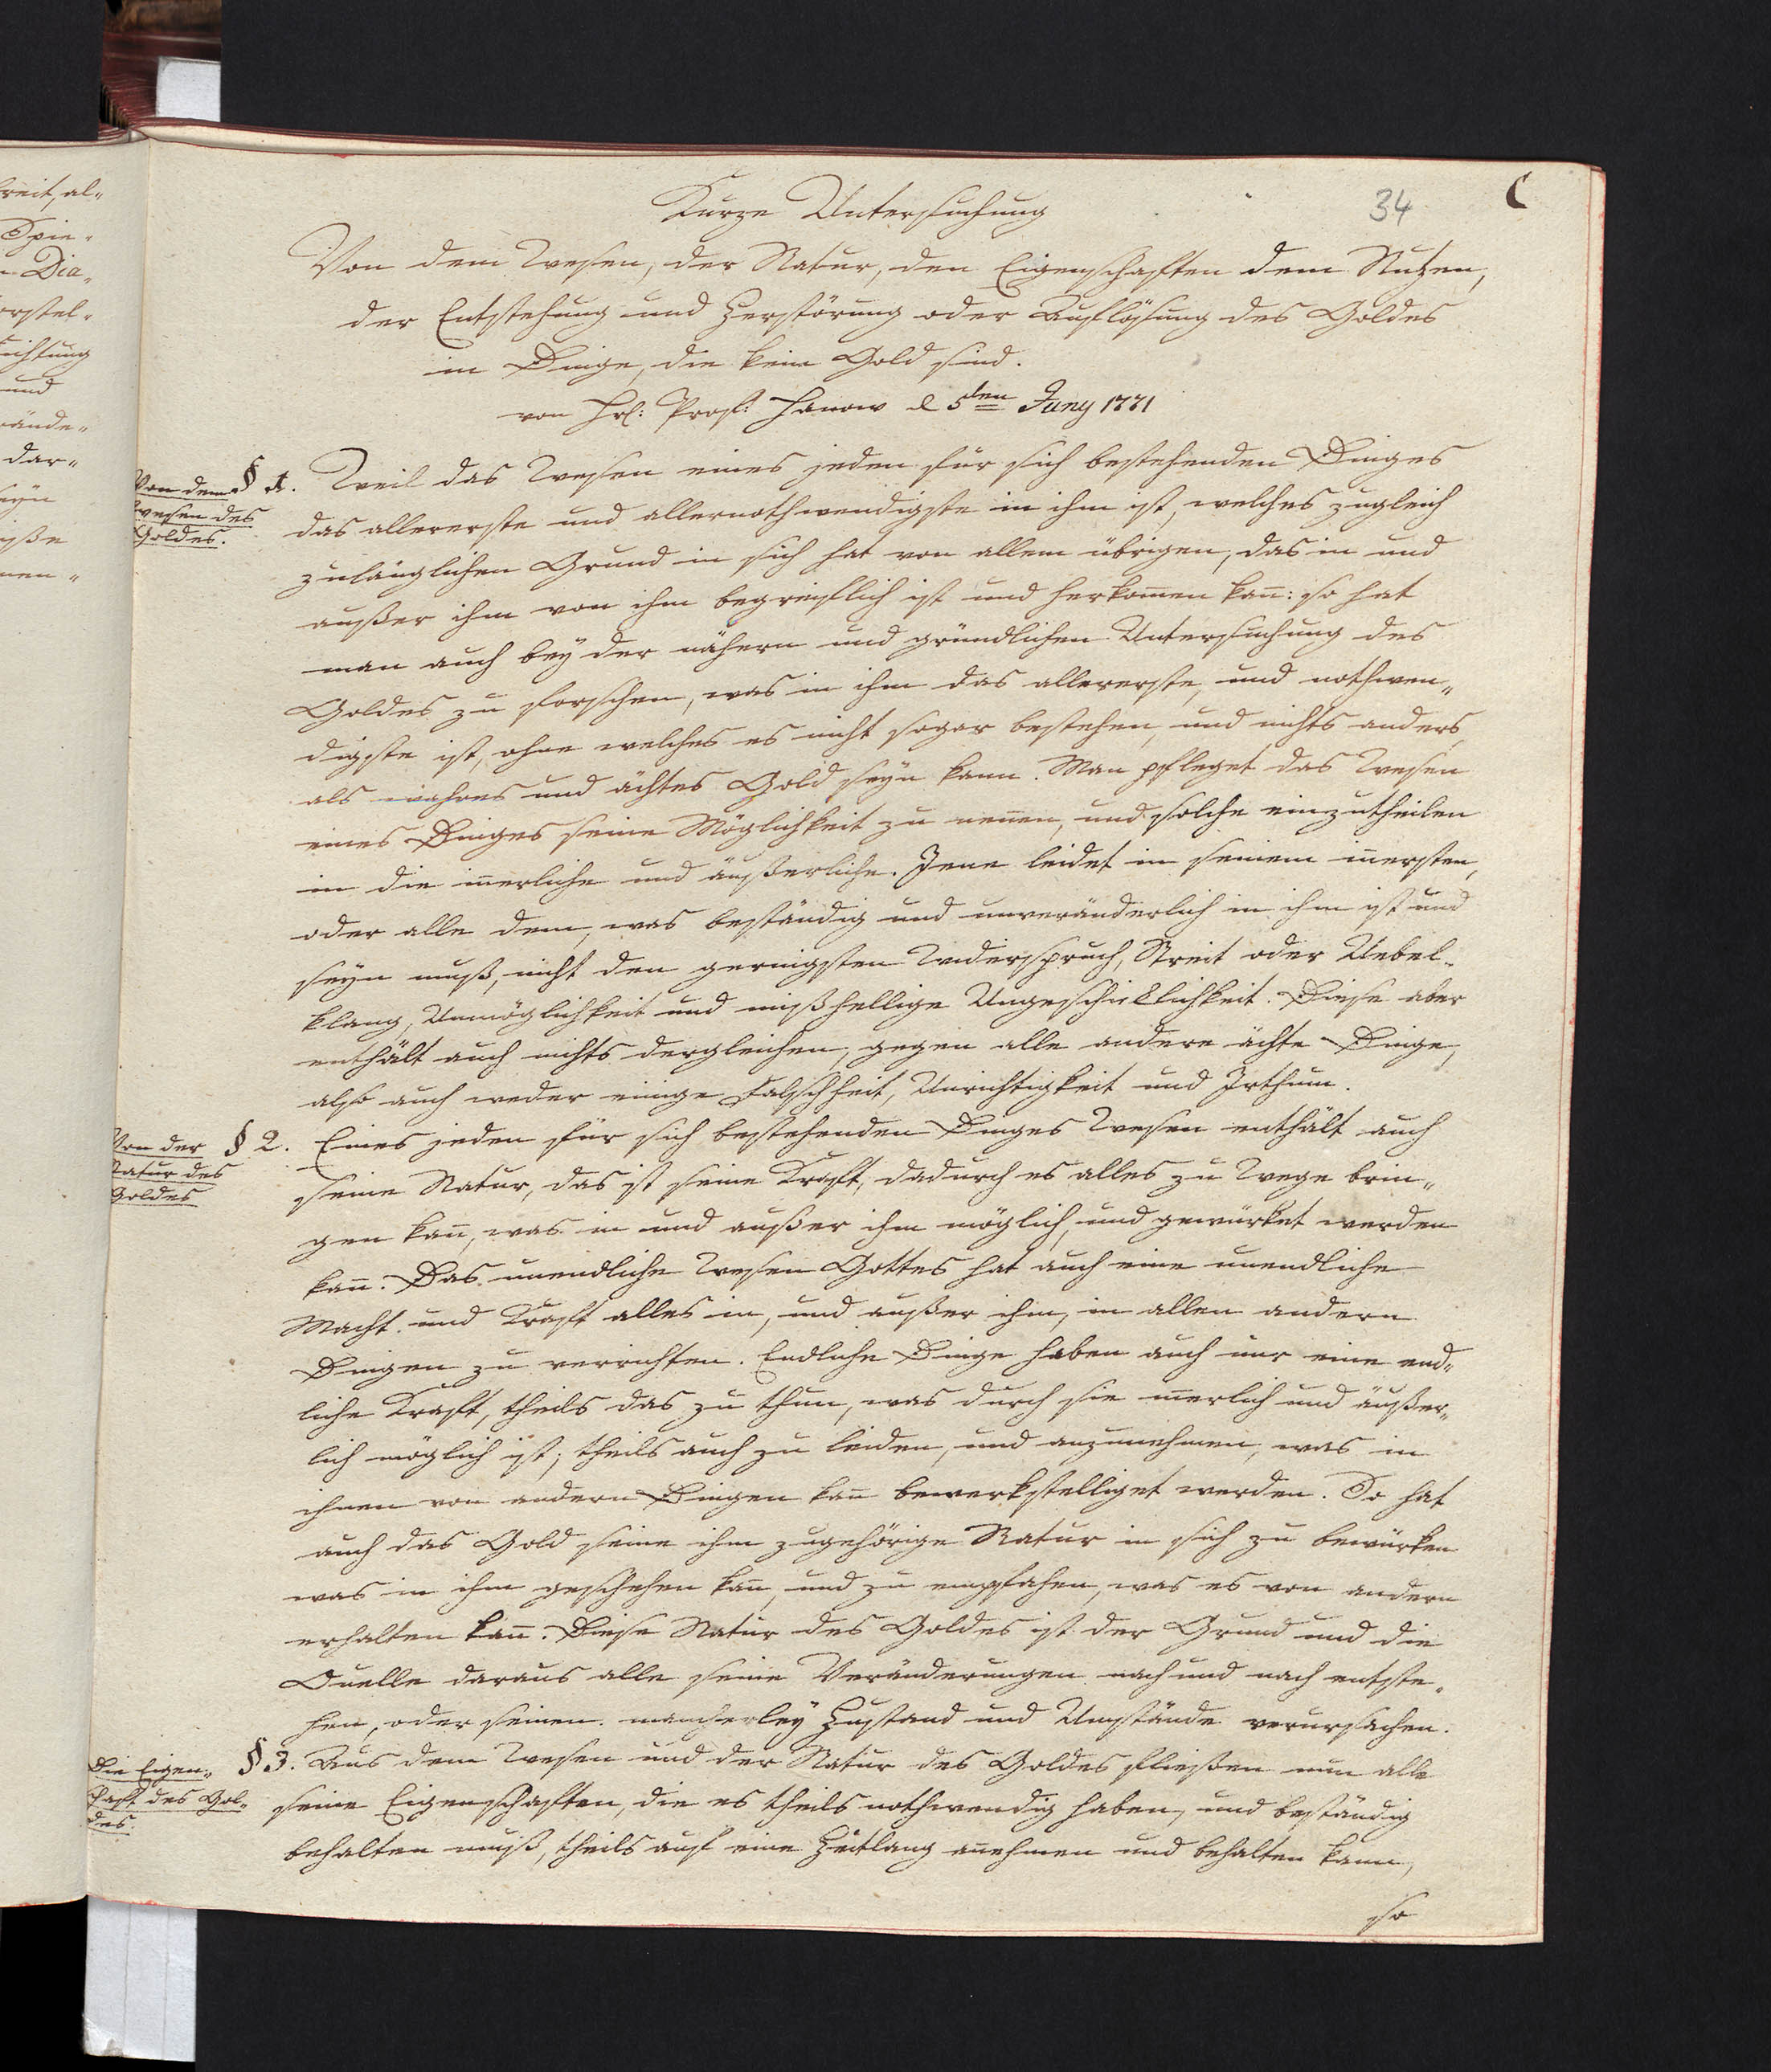 34
Kurze Untersuchung
Von dem Wesen, der Natur, den Eigenschaften dem Nutzen,
der Entstehung und Zerstörung oder Auflösung des Goldes
in Dinge, die kein Gold sind.
von Hrl: Prof: Hanow d 5ten Juny 1771
Von dem
Wesen des
Goldes.
§ 1. Weil das Wesen eines jeden für sich bestehenden Dinges
das allererste und allernothwendigste in ihm ist, welches zugleich
zulänglichen Grund in sich hat von allem übrigen, das in und
außer ihm von ihm begreiflich ist und herkom̄en kan̄: so hat
man auch beÿ der nähern und gründlichen Untersuchung des
Goldes zu forschen, was in ihm das allererste, und nothwen„
digste ist, ohne welches es nicht sogar bestehen, und nichts anders,
als wahres und ächtes Gold seyn kann. Man pfleget das Wesen
eines Dinges seine Möglichkeit zu nen̄en, und solche einzutheilen
in die in̄erliche und äußerliche. Jene leidet in seinem in̄ersten,
oder alle dem, was beständig und unveränderlich in ihm ist und
seyn muß, nicht den geringsten Widerspruch, Streit oder Uebel„
klang, Unmöglichkeit und mißhellige Ungeschicklichkeit. Diese aber
enthält auch nichts dergleichen, gegen alle andere ächte Dinge,
also auch weder einige Falschheit, Unrichtigkeit und Irthum.
Von der
Natur des
Goldes
§ 2. Eines jeden für sich bestehenden Dinges Wesen enthält auch
seine Natur, das ist seine Kraft, dadurch es alles zu Wege brin„
gen kan̄, was in und außer ihm möglich, und gewürket werden
kan̄. Das unendliche Wesen Gottes hat auch eine unendliche
Macht und Kraft alles in, und außer ihm, in allen andern
Dingen zu verrichten. Endliche Dinge haben auch nur eine end„
liche Kraft, theils das zu thun, was durch sie in̄erlich und äußer„
lich möglich ist, theils auch zu leiden, und anzunehmen, was in
ihnen von andern Dingen kan̄ bewerkstelliget werden. So hat
auch das Gold seine ihm zugehörige Natur in sich zu bewürken
was in ihm geschehen kan̄, und zu empfahen, was es von andern
erhalten kan̄. Diese Natur des Goldes ist der Grund und die
Quelle daraus alle seine Veränderungen nach und nach entste„
hen, oder seinen mancherleÿ Zustand und Umstände verursachen.
Die Eigen„
schaft des Gol„
des.
§ 3. Aus dem Wesen und der Natur des Goldes fließen nun alle
seine Eigenschaften, die es theils nothwendig haben, und beständig
behalten muß, theils auf eine Zeitlang an̄ehmen und behalten kann,
so